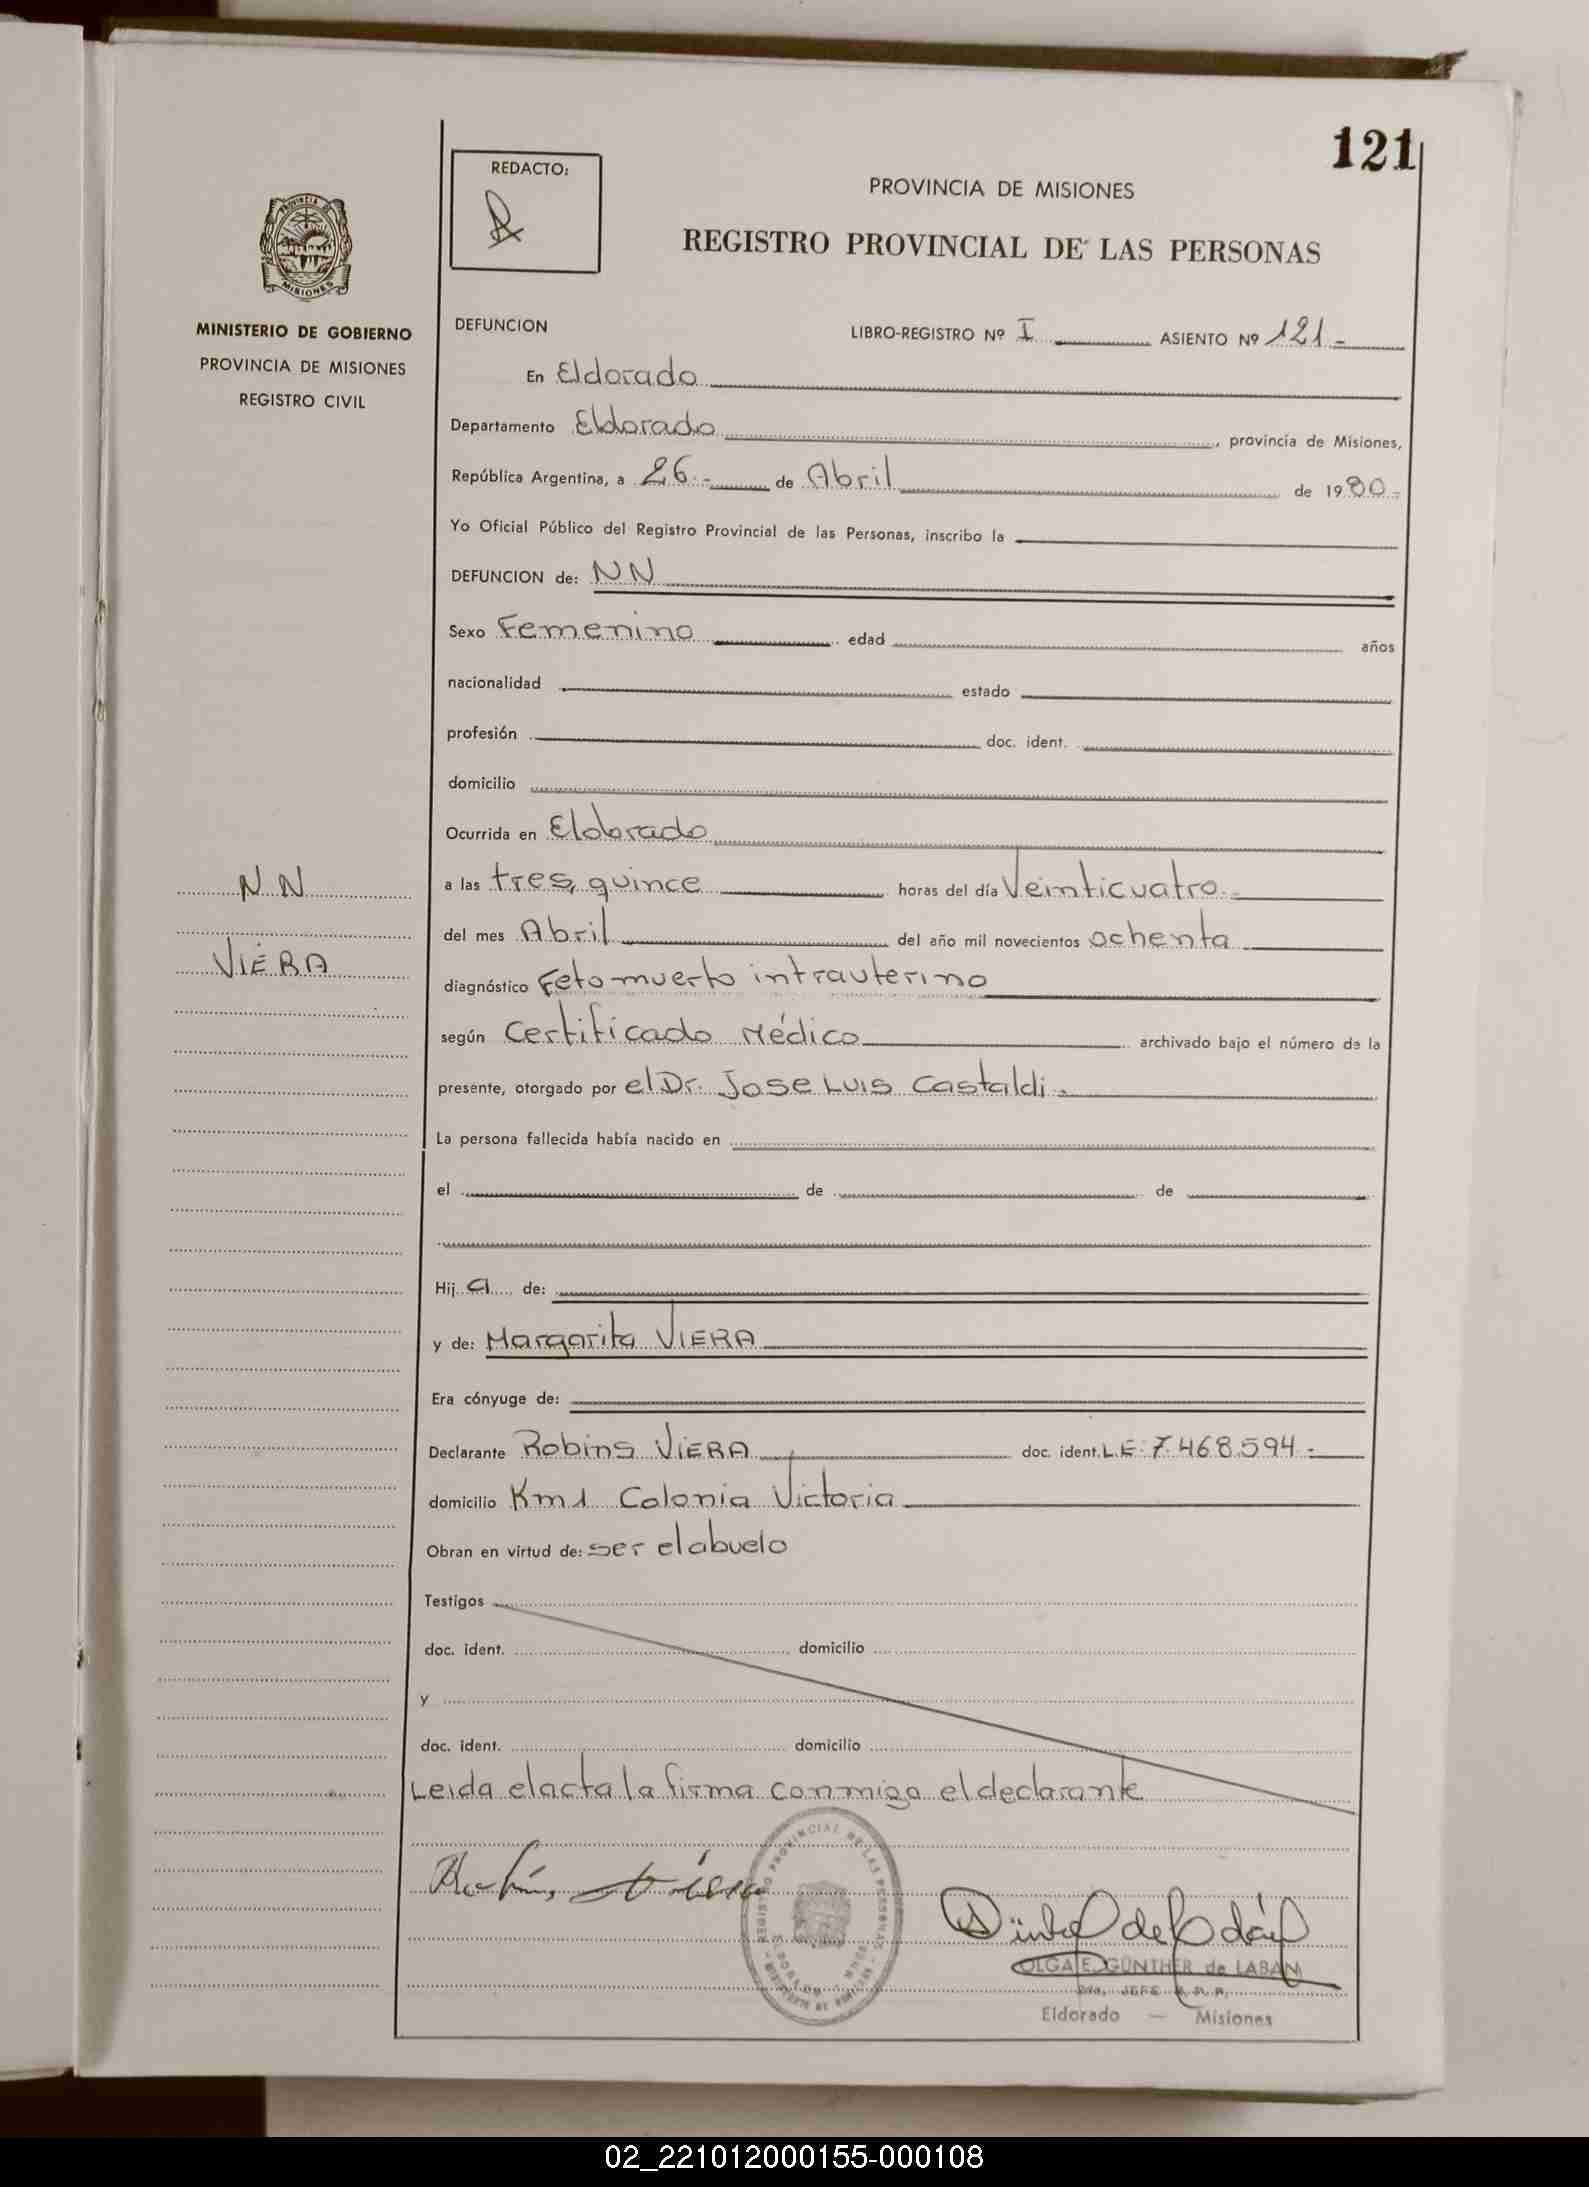 121
REDACTO:
PROVINCIA DE MISIONES
REGISTRO PROVINCIAL DE LAS PERSONAS
PROVINCIA DE
MISIONES
MINISTERIO DE GOBIERNO
PROVINCIA DE MISIONES
REGISTRO CIVIL
DEFUNCION LIBRO-REGISTRO Nº I ASIENTO Nº 121-
En Eldorado
Departamento Eldorado, provincia de Misiones,
República Argentina, a 26.- de Abril de 1980.-
Yo Oficial Público del Registro Provincial de las Personas, inscribo la
DEFUNCION de: NN
Sexo Femenino edad años
nacionalidad estado
profesión doc. ident.
domicilio
Ocurrida en Eldorado
NN
a las tres, quince horas del día Veinticuatro
del mes Abril del año mil novecientos ochenta
VIERA
diagnóstico Feto muerto intrauterino
según Certificado Médico archivado bajo el número de la
presente, otorgado por el Dr. Jose Luis Castaldi.-
La persona fallecida había nacido en
el de de
Hij a de:
y de: Margarita VIERA
Era cónyuge de:
Declarante Robins VIERA doc. ident. L.E: 7.468.594.-
domicilio Km 1 Colonia Victoria
Obran en virtud de: ser el abuelo
Testigos
doc. ident. domicilio
y
doc. ident. domicilio
Leida el acta la firma conmigo el declarante
Robins Viera
REGISTRO PROVINCIAL DE LAS PERSONAS
OLGA E. GÜNTHER de LABAN
2da. JEFE R.P.P.
Eldorado — Misiones
02_221012000155-000108